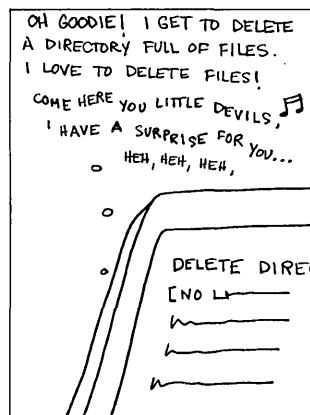 OH GOODIE! I GET TO DELETE
A DIRECTORY FULL OF FILES.
I LOVE TO DELETE FILES!
COME HERE YOU LITTLE DEVILS,
I HAVE A SURPRISE FOR YOU...
HEH, HEH, HEH,
DELETE DIREC
[NO